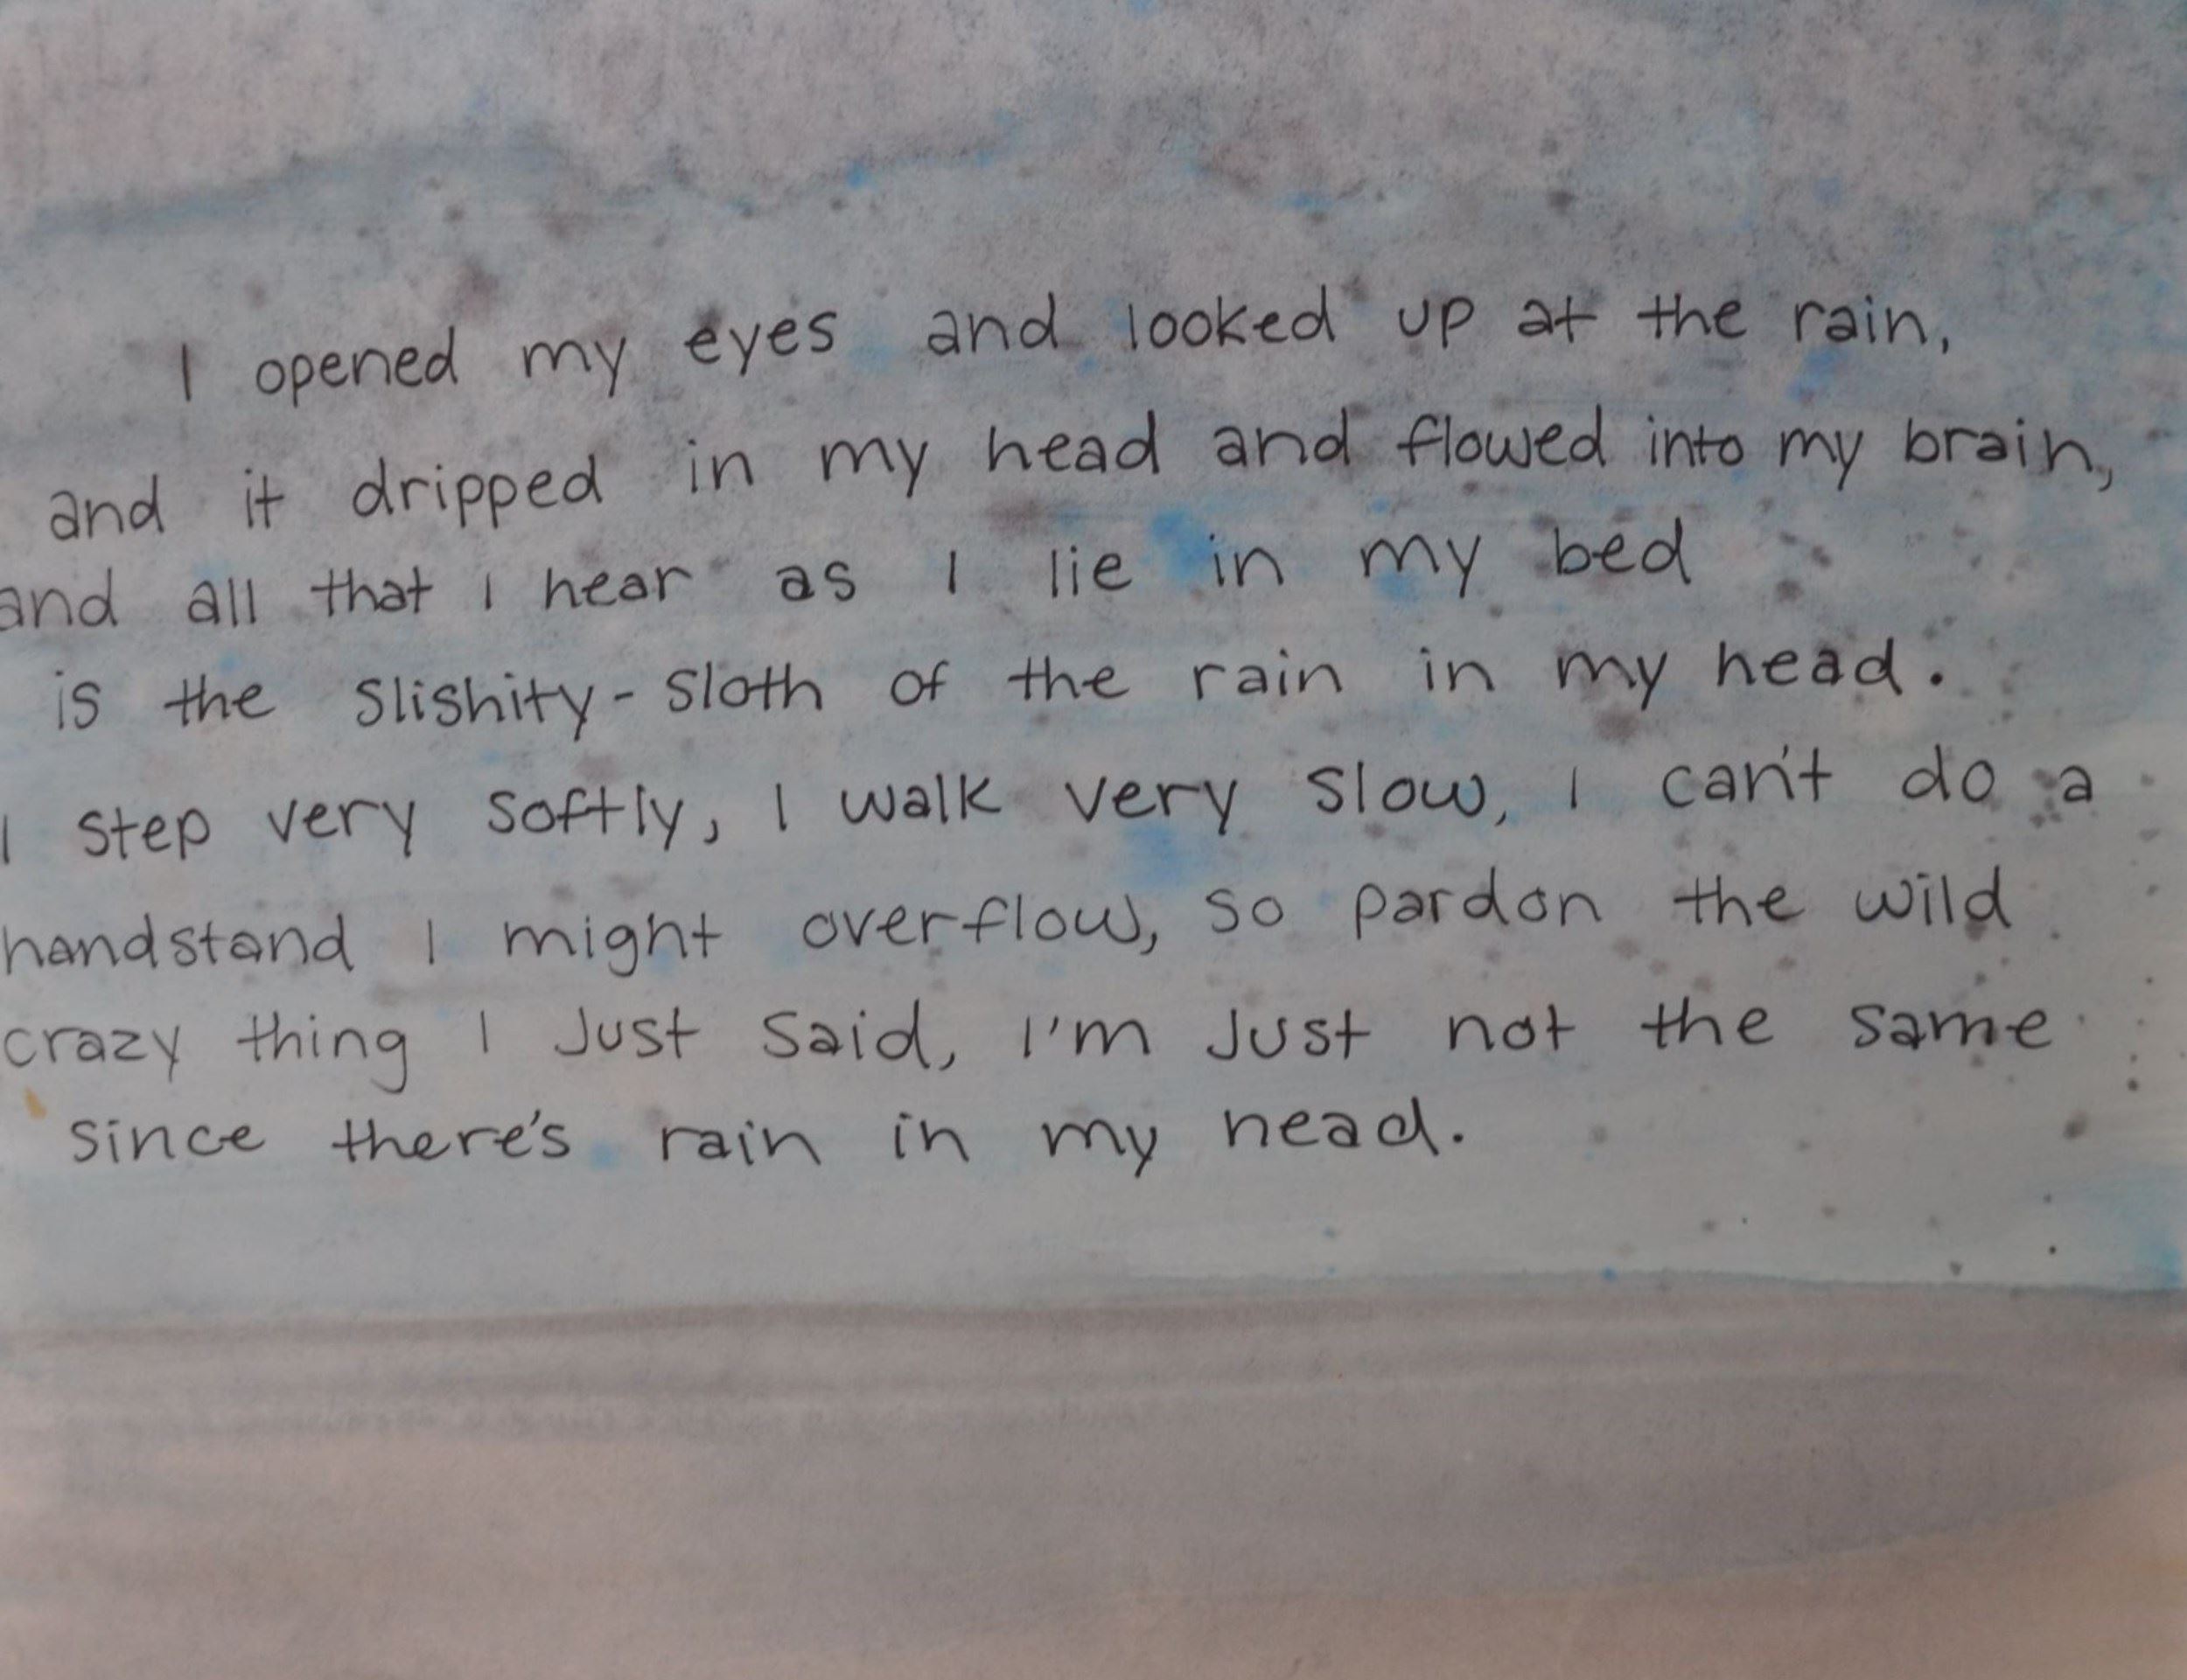 I opened my eyes and looked up at the rain,
and it dripped in my head and flowed into my brain,
and all that I hear as I lie in my bed
is the slishity-sloth of the rain in my head.
I step very softly, I walk very slow, I can't do a
handstand I might overflow, so pardon the wild
crazy thing I Just said, I'm Just not the same
since there's rain in my head.